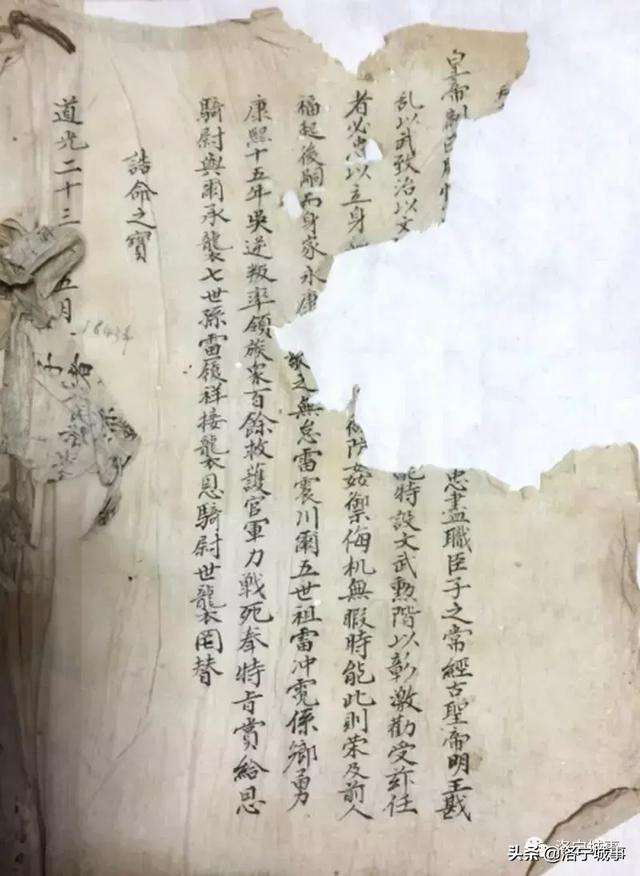 皇帝制曰
忠盡職臣子之常經古聖帝明王戡
乱以武致治以文
能特設文武勲階以彰激勸受兹任
者必忠以立身
姦禦侮机無暇時能此則荣及前人
福起後嗣而身家永康
敬之無怠雷震川爾五世祖雷冲霄係鄉勇
康熙十五年吳逆叛率領族衆百餘救護官軍力戰死奉特旨賞給恩
騎尉與爾承襲七世孫雷履祥接襲恩騎尉世襲罔替
誥命之寶
道光二十三
五月
1843年
头条 @洛宁城事
洛宁城事